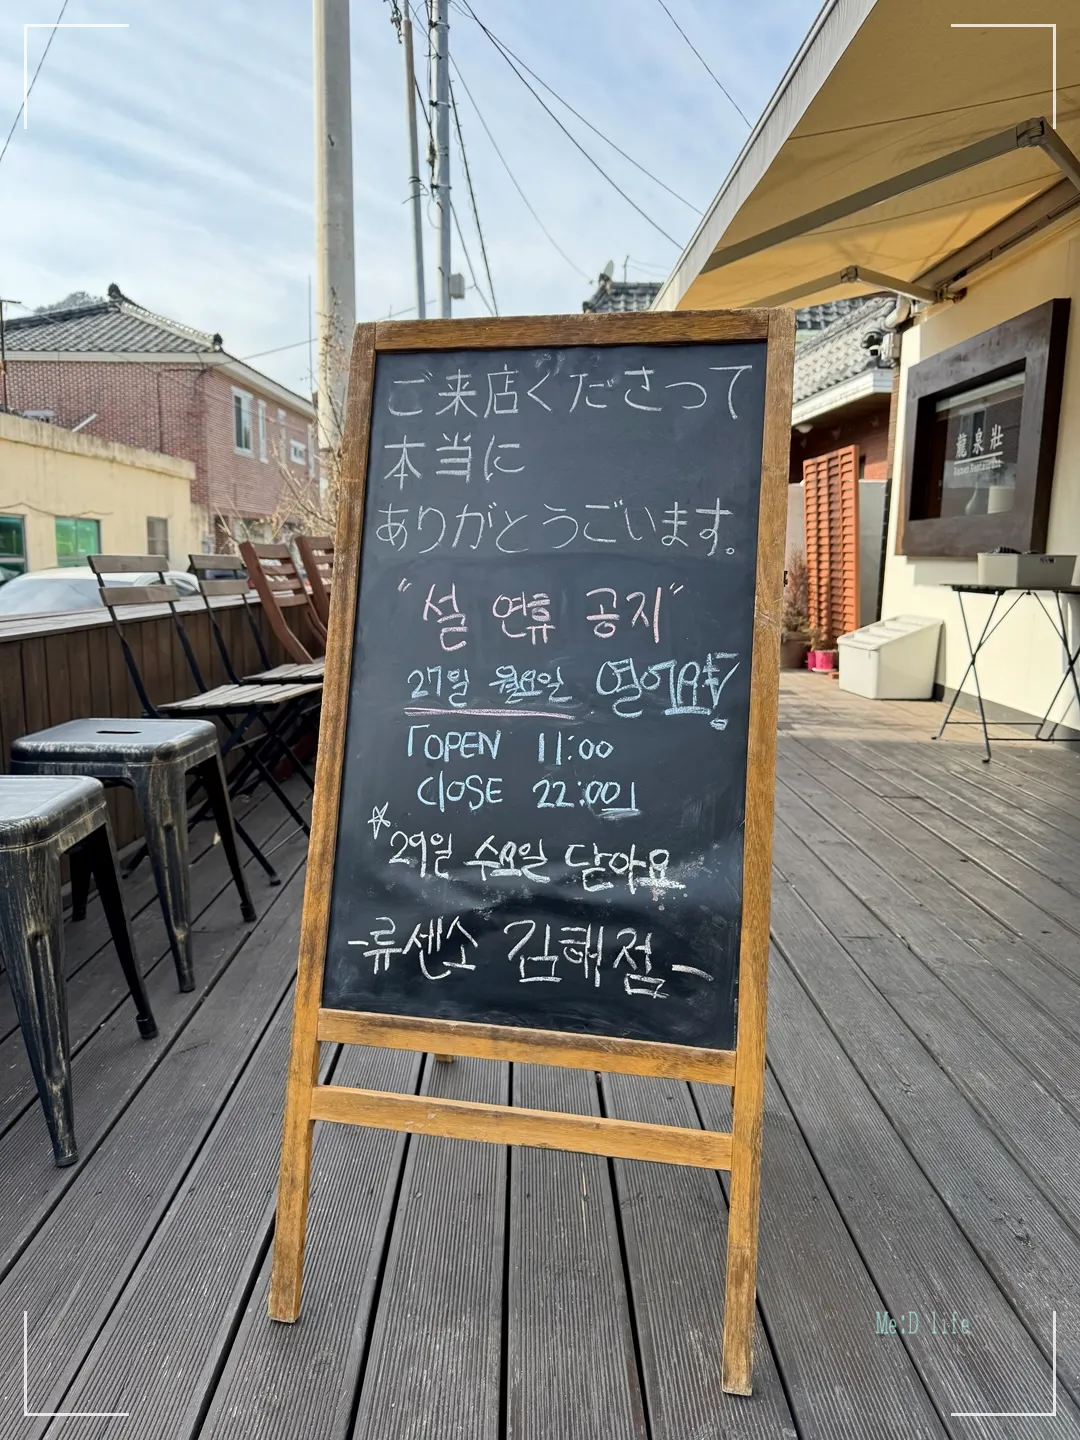 ご来店くださって
本当に
ありがとうございます。
"설 연휴 공지"
27일 월요일 열어요!
「OPEN 11:00
CLOSE 22:00」
☆29일 수요일 닫아요
-류센소 김해점-
龍泉壯
Ramen Restaurant
Me:D life